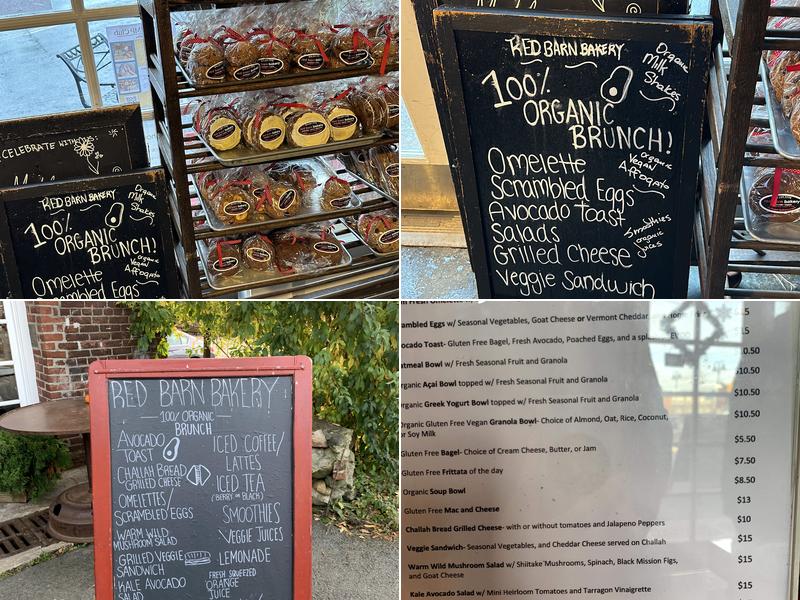 CELEBRATE WITH US:
RED BARN BAKERY
100%
ORGANIC
BRUNCH!
Omelette
Scrambled Eggs
Organic
Milk
Shakes
Organic
Vegan
Affogato
RED BARN BAKERY
100%
ORGANIC
BRUNCH!
Omelette
Scrambled Eggs
Avocado Toast
Salads
Grilled Cheese
Veggie Sandwich
Organic
Milk
Shakes
Organic
Vegan
Affogato
Smoothies
organic
juices
bakery
RED BARN BAKERY
100% ORGANIC
BRUNCH
AVOCADO
TOAST
CHALLAH BREAD
GRILLED CHEESE
OMELETTES/
SCRAMBLED EGGS
WARM WILD
MUSHROOM SALAD
GRILLED VEGGIE
SANDWICH
KALE AVOCADO
SALAD
ICED COFFEE/
LATTES
ICED TEA
(BERRY OR BLACK)
SMOOTHIES
VEGGIE JUICES
LEMONADE
FRESH SQUEEZED
ORANGE
JUICE
ambled Eggs w/ Seasonal Vegetables, Goat Cheese or Vermont Cheddar
ocado Toast- Gluten Free Bagel, Fresh Avocado, Poached Eggs, and a
atmeal Bowl w/ Fresh Seasonal Fruit and Granola 0.50
rganic Açai Bowl topped w/ Fresh Seasonal Fruit and Granola 10.50
rganic Greek Yogurt Bowl topped w/ Fresh Seasonal Fruit and Granola $10.50
Organic Gluten Free Vegan Granola Bowl- Choice of Almond, Oat, Rice, Coconut, $10.50
or Soy Milk
Gluten Free Bagel- Choice of Cream Cheese, Butter, or Jam $5.50
Gluten Free Frittata of the day $7.50
Organic Soup Bowl $8.50
Gluten Free Mac and Cheese $13
Challah Bread Grilled Cheese- with or without tomatoes and Jalapeno Peppers $10
Veggie Sandwich- Seasonal Vegetables, and Cheddar Cheese served on Challah $15
Warm Wild Mushroom Salad w/ Shiitake Mushrooms, Spinach, Black Mission Figs, $15
and Goat Cheese
Kale Avocado Salad w/ Mini Heirloom Tomatoes and Tarragon Vinaigrette $15